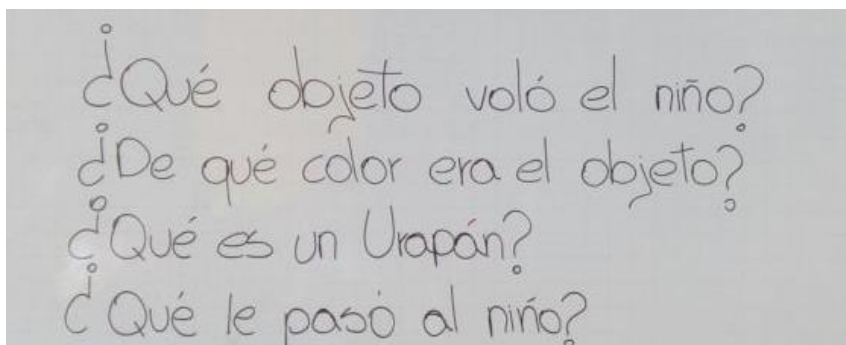 ¿Qué objeto voló el niño?
¿De qué color era el objeto?
¿Qué es un Urapán?
¿Qué le pasó al niño?